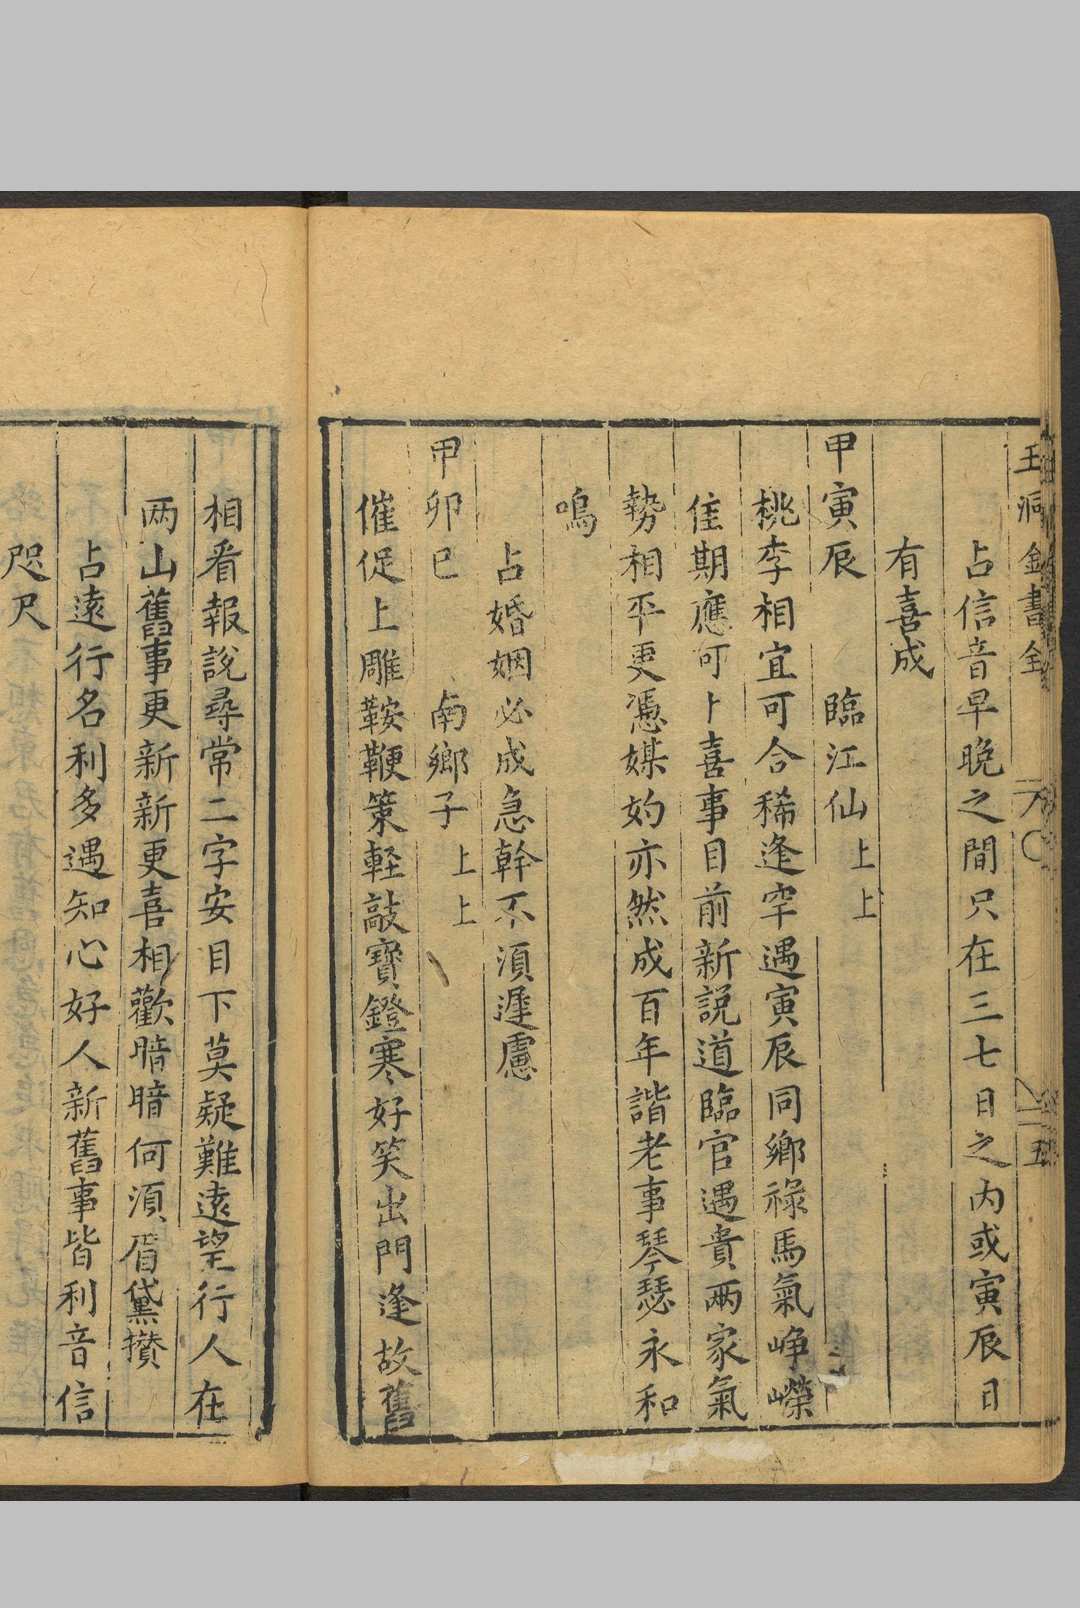 玉洞金書全 五
占信音早晚之間只在三七日之內或寅辰日
有喜成
甲寅辰 臨江仙 上上
桃李相宜可合稀逢罕遇寅辰同鄉祿馬氣崢嶸
佳期應可卜喜事目前新説道臨官遇貴兩家氣
勢相平更憑媒妁亦然成百年諧老事琴瑟永和
鳴
占婚姻必成急幹不須遲慮
甲卯巳 南鄉子 上上
催促上雕鞍鞭策輕敲寶鐙寒好笑出門逢故舊
相看報說尋常二字安目下莫疑難遠望行人在
两山舊事更新新更喜相歡暗暗何須眉黛攢
占遠行名利多遇知心好人新舊事皆利音信
咫尺